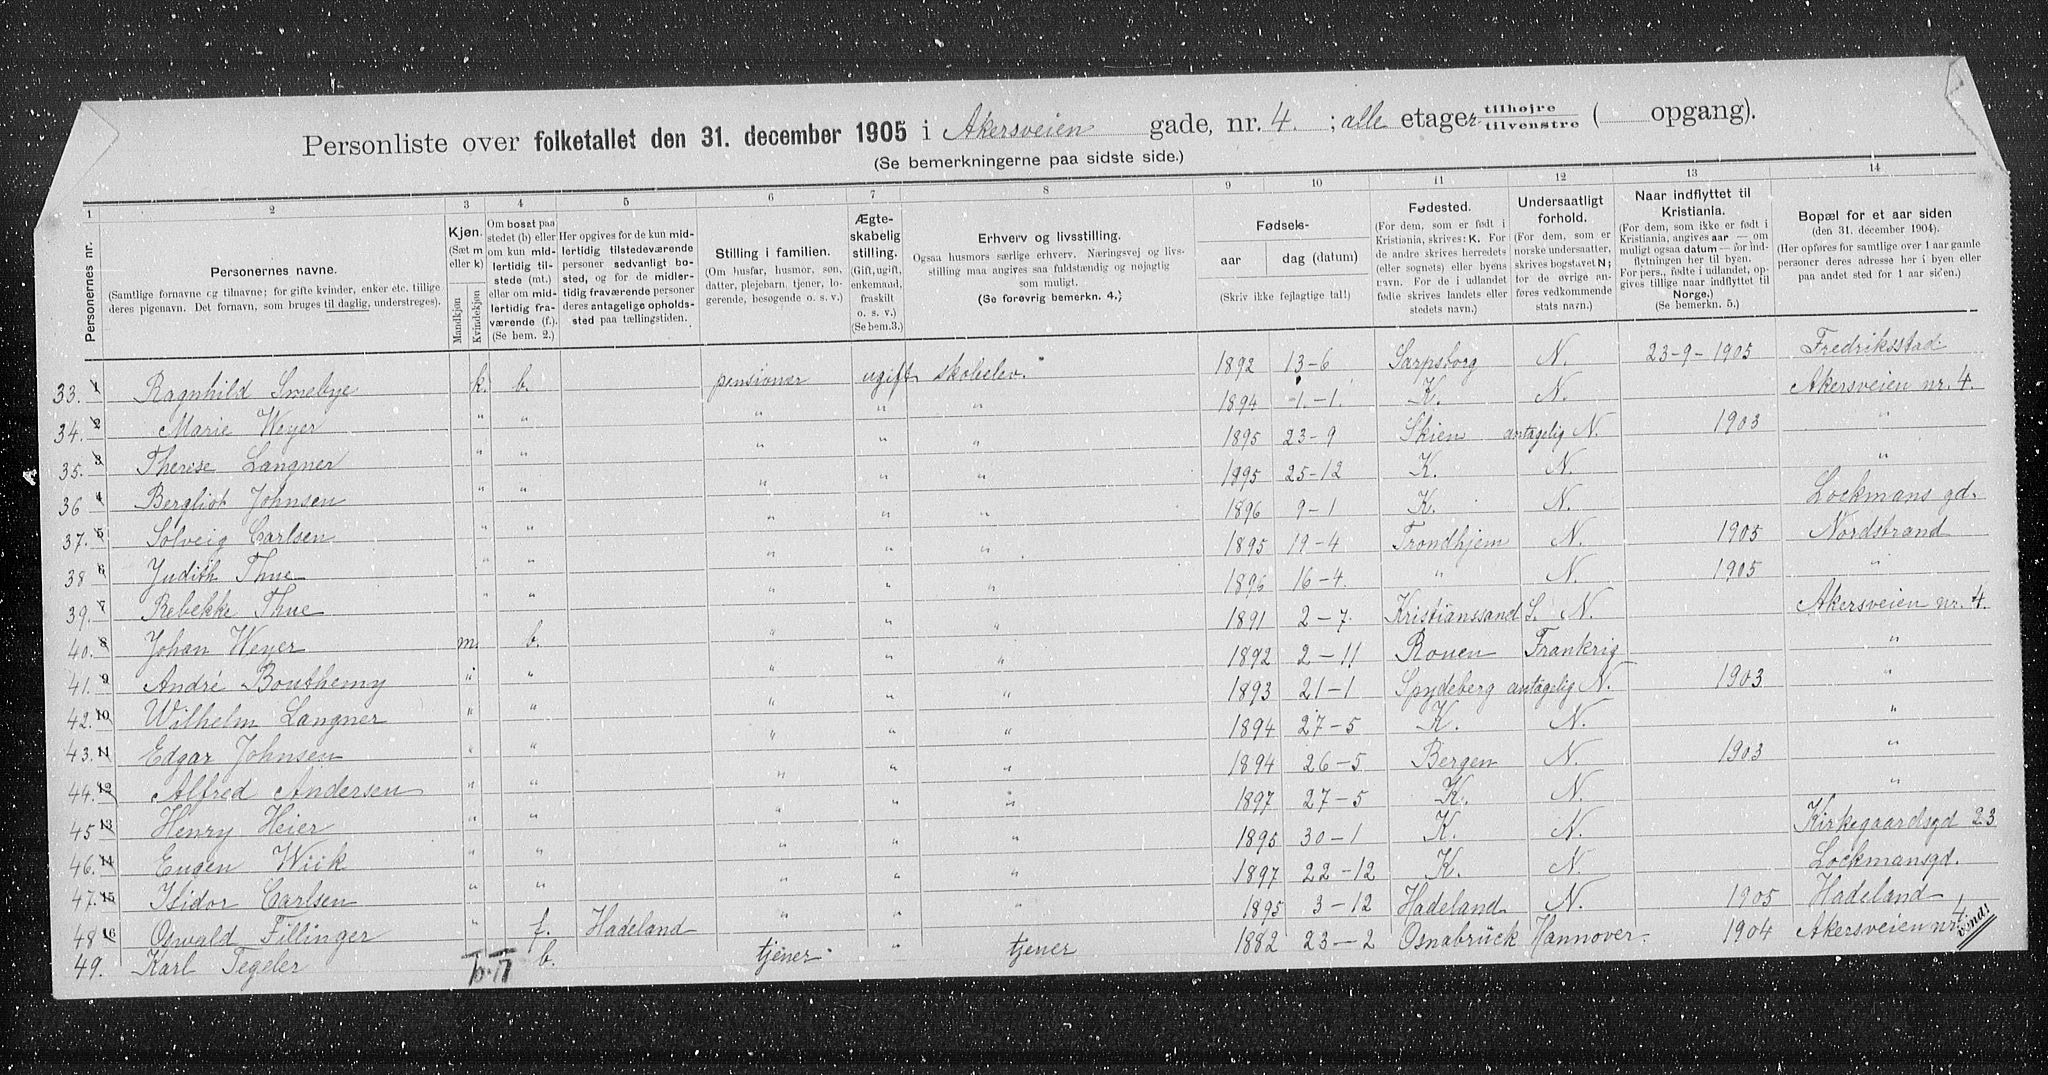 Personliste over folketallet den 31. december 1905 i Akersveien gade, nr. 4. ; alle etager tilhøjre tilvenstre ( opgang).
(Se bemerkningerne paa sidste side.)
1 2 3 4 5 6 7 8 9 10 11 12 13 14
Personernes nr.
Personernes navne.
(Samtlige fornavne og tilnavne; for gifte kvinder, enker etc. tillige
deres pigenavn. Det fornavn, som bruges til daglig, understreges).
Kjøn.
(Sæt m
eller k)
Mandkjøn
Kvindekjøn
Om bosat paa
stedet (b) eller
om kun midlertidig
tilstede (mt.)
eller om midlertidig
fraværende (f.).
(Se bem. 2.)
Her opgives for de kun midlertidig
tilstedeværende
personer sedvanligt bosted,
og for de midlertidig
fraværende personer
deres antagelige opholdssted
paa tællingstiden.
Stilling i familien.
(Om husfar, husmor, søn,
datter, plejebarn, tjener, logerende,
besøgende o. s. v.)
Ægteskabelig
stilling.
(Gift, ugift,
enkemand,
fraskilt
o. s. v.)
(Se bem.3.)
Erhverv og livsstilling.
Ogsaa husmors særlige erhverv. Næringsvej og livsstilling
maa angives saa fuldstændig og nøjagtig
som muligt.
(Se forøvrig bemerkn. 4.)
Fødsels-
aar dag (datum)
(Skriv ikke fejlagtige tal!)
Fødested.
(For dem, som er født i
Kristiania, skrives: K. For
de andre skrives herredets
(eller sognets) eller byens
navn. For de i udlandet
fødte skrives landets eller
stedets navn.)
Undersaatligt
forhold.
(For dem, som er
norske undersaatter,
skrives bogstavet N;
for de øvrige anføres
vedkommende
stats navn.)
Naar indflyttet til
Kristiania.
(For dem, som ikke er født i
Kristiania, angives aar — om
muligt ogsaa datum — for indflytningen
her til byen.
For pers., fødte i udlandet, opgives
tillige naar indflyttet til
Norge.)
(Se bemerkn. 5.)
Bopæl for et aar siden
(den 31. december 1904).
(Her opføres for samtlige over 1 aar gamle
personer deres adresse her i byen eller
paa andet sted for 1 aar siden.)
33. 1 Ragnhild Smebye k. b. pensionær ugift skoleelev. 1892 13-6 Sarpsborg N. 23-9-1905 Fredriksstad
34. 2 Marie Weyer " " " " " 1894 1.-1. K. N. Akersveien nr. 4.
35. 3 Therese Langner " " " " " 1895 23-9 Skien antagelig N. 1903 "
36 4 Bergliot Johnsen " " " " " 1895 25-12 K. N. "
37. 5 Solveig Carlsen " " " " " 1896 9-1 K. N. Lockmans gd.
38 6 Judith Thue " " " " " 1895 19-4 Trondhjem N. 1905 Nordstrand
39. 7 Rebekke Thue " " " " " 1896 16-4. " N. 1905 "
40. 8 Johan Weyer m. b. " " " 1891 2-7. Kristianssand S. N. Akersveien nr. 4.
41. 9 André Bouthemy " " " " " 1892 2-11 Rouen Frankrig "
42. 10 Wilhelm Langner " " " " " 1893 21-1 Spydeberg antagelig N. 1903 "
43. 11 Edgar Johnsen " " " " " 1894 27-5 K. N. "
44. 12 Alfred Andersen " " " " " 1894 26-5 Bergen N. 1903 "
45 13 Henry Heier " " " " " 1897 27-5 K. N. "
46. 14 Eugen Wiik " " " " " 1895 30-1 K. N. Kirkegaardsgd 23
47. 15 Isidor Carlsen " " " " " 1897 22-12 K. N. Lockmansgd.
48 16 Oswald Fillinger " f. Hadeland " " " 1895 3-12 Hadeland N. 1905 Hadeland
49. Karl Tegeler b. tjener " tjener 1882 23-2 Osnabrück Hannover. 1904 Akersveien nr. 4
vend!